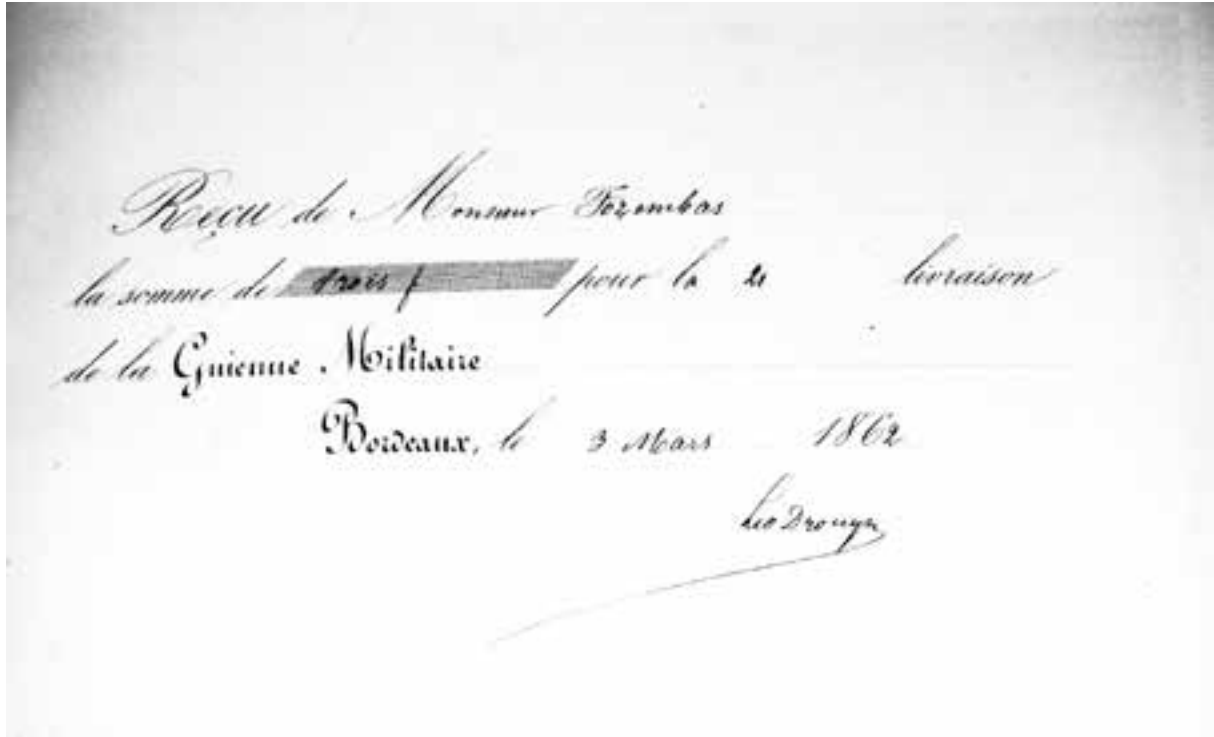 Reçu de Monsieur Fozembas
la somme de trois f pour la 2e livraison
de la Guienne Militaire
Bordeaux, le 3 Mars 1862
Leo Drouyn